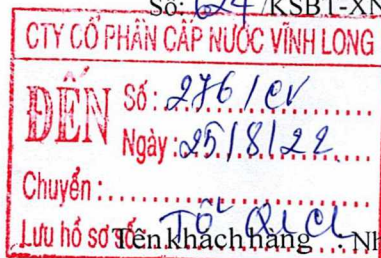 Số: 624 /KSBT-XN
CTY CỔ PHẦN CẤP NƯỚC VĨNH LONG
ĐẾN Số: 276/CV
Ngày: 25/8/22
Chuyển:
Lưu hồ sơ số: Tổ QLCL
Tên khách hàng : Nh